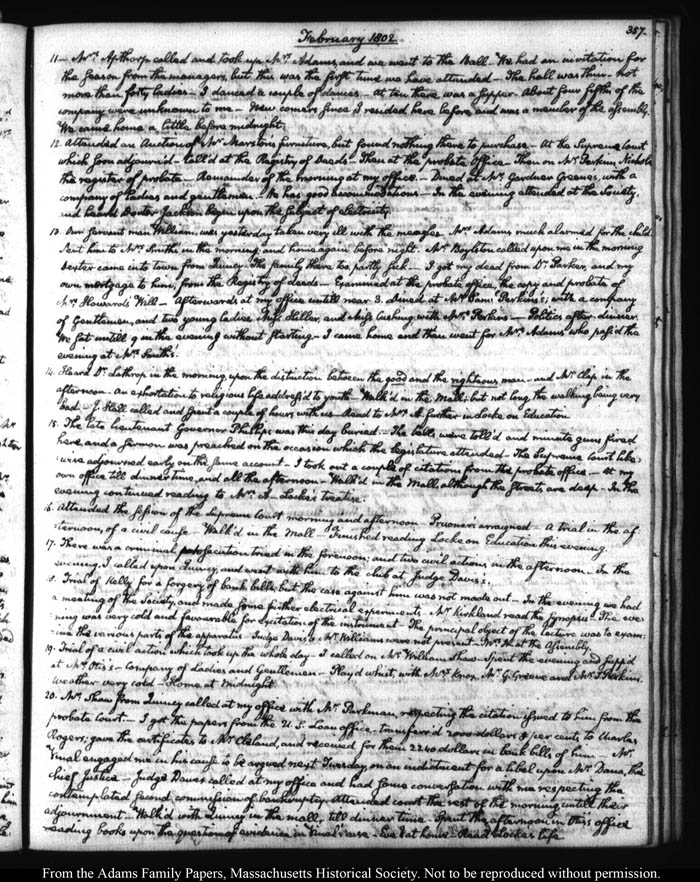 February 1802
357.
11— Mrs. Apthorp called and took up Mrs. Adams, and we went to the Ball— We had an invitation for
the season from the managers, but this was the first time we have attended— The hall was thin— not
more than forty ladies— I danced a couple of dances— At ten there was a supper— About four fifths of the
company were unknown to me— New comers since I resided here before and was a member of the assembly.
We came home a little before midnight.
12. Attended an Auction of Mr. Marston's furniture, but found nothing there to purchase— At the Supreme Court
which soon adjourn'd— Call'd at the Registry of Deeds— Then at the probate Office— Then on Mr. Perkins Nichols
the register of probate— Remainder of the morning at my office— Dined at Mr. Gardner Greene's, with a
company of ladies and gentlemen— He has good accommodations— In the evening attended at the Society,
and heard Doctor Jackson begin upon the subject of electricity.
13. Our servant man William, was yesterday taken very ill with the meazles. Mrs. Adams much alarmed for the child
Sent him to Mrs. Smith's in the morning and home again before night. Mr. Boylston called upon me in the morning
came into town from Quincy— The family there too partly sick— I got my deed from Dr. Parker, and my
own mortgage to him, from the Registry of deeds— Examined at the probate office, the copy and probate of
Mr. Howard's Will— Afterwards at my office untill near 3. dined at Mr. Saml. Perkins's, with a company
of Gentlemen, and two young ladies Miss Hiller, and Miss Cushing with Mrs. Perkins— Politics after dinner
We sat untill 9 in the evening without starting— I came home and then went for Mrs. Adams who pass'd the
evening at Mrs. Smith's.
14. Heard Dr. Lothrop in the morning upon the distinction between the good and the righteous man— and Mr. Clap in the
afternoon— An exhortation to religious life address'd to youth— Walk'd in the Mall; but not long the walking being very
bad— J. Hall called and spent a couple of hours with us— Read to Mrs. A. further in Locke on Education
15. The late lieutenant Governor Phillips was this day buried— The bells were toll'd and minute guns fired
here, and a sermon was preached on the occasion which the legislature attended— The Supreme Court like-
wise adjourned early on the same account— I took out a couple of citations from the probate office— At my
own office till dinner time, and all the afternoon— Walk'd in the Mall, although the streets are deep— In the
evening continued reading to Mrs. A— Locke's treatise.
16. Attended the session of the Supreme Court morning and afternoon— Prisoners arraigned— A trial in the af-
ternoon, of a civil cause— Walk'd in the Mall— Finished reading Locke on Education this evening
17. There was a criminal prosecution tried in the forenoon; and two civil actions in the afternoon. In the
evening I called upon Quincy, and went with him to the club at Judge Davis's.
18. Trial of Kelly for a forgery of bank bills; but the case against him was not made out. In the evening we had
a meeting of the Society, and made some further electrical experiments. Mr. Kirkland read the synopsis— The eve-
ning was very cold and favourable for excitation of the instrument— The principal object of the lecture was to exam-
ine the various parts of the apparatus— Judge Davis &amp; Mr. Williams were not present— Mrs. A at the Assembly.
19. Trial of a civil action which took up the whole day— I called on Mr. William Shaw— Spent the evening and supp'd
at Mr. Otis's— Company of Ladies and Gentlemen— Play'd whist, with Mrs. Knox, Mr. G. Greene and Mr. T. Perkins.
Weather very cold— Home at midnight.
20. Mr. Shaw from Quincy called at my office with Mr. Parkman, respecting the citation issued to him from the
probate court— I got the papers from the U.S. Loan office, transferr'd 2000 dollars 8 per cents to Charles
Rogers, gave the certificates to Mr. Cleland, and received for them 2240 dollars in bank bills of him— Mr.
Vinal engaged me in his cause to be argued next Tuesday, on an indictment for a libel upon Mr. Dana, the
chief Justice— Judge Dawes called at my office and had some conversation with me respecting the
contemplated second commission of bankruptcy. Attended court the rest of the morning untill their
adjournment— Walk'd with Quincy in the mall, till dinner time— Spent the afternoon in Otis's office
reading books upon the question of evidence in Vinal's case— Eve at home— Read Locke's life
From the Adams Family Papers, Massachusetts Historical Society. Not to be reproduced without permission.